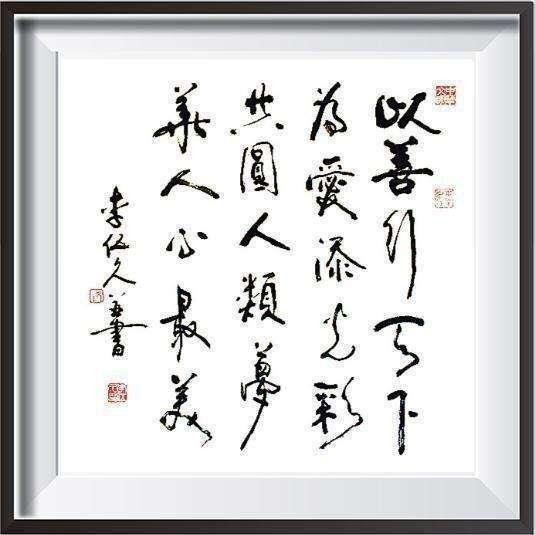 以善行天下
為愛添光彩
共圓人類夢
華人心最美
李伍久書